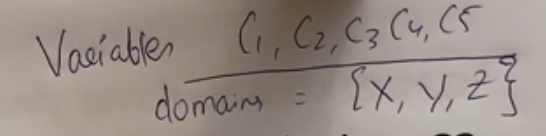 Variables C1, C2, C3 C4, C5
domains = {X, Y, Z}